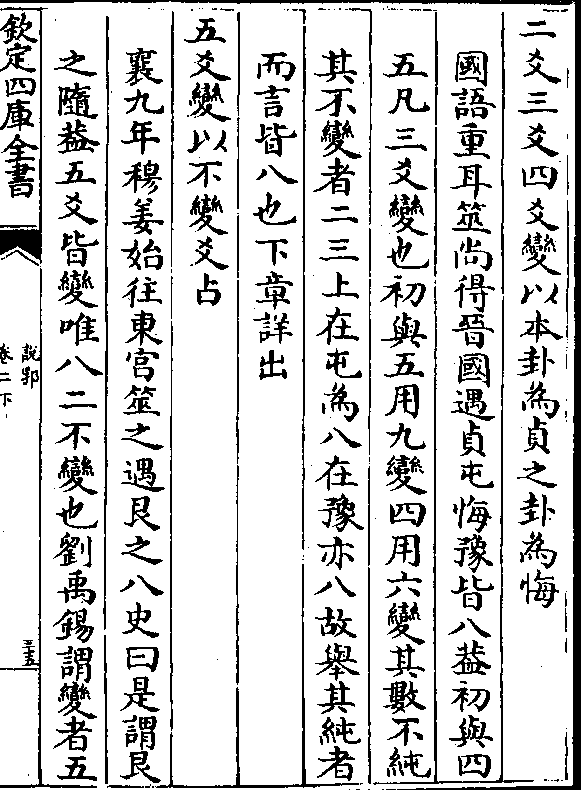 二爻三爻四爻變以本卦為貞之卦為悔
國語重耳筮尚得晉國遇貞屯悔豫皆八葢初與四
五凡三爻變也初與五用九變四用六變其數不純
其不變者二三上在屯為八在豫亦八故舉其純者
而言皆八也下章詳出
五爻變以不變爻占
襄九年穆姜始往東宮筮之遇艮之八史曰是謂艮
之隨葢五爻皆變唯八二不變也劉禹錫謂變者五
欽定四庫全書
說郛
卷二下
三十五